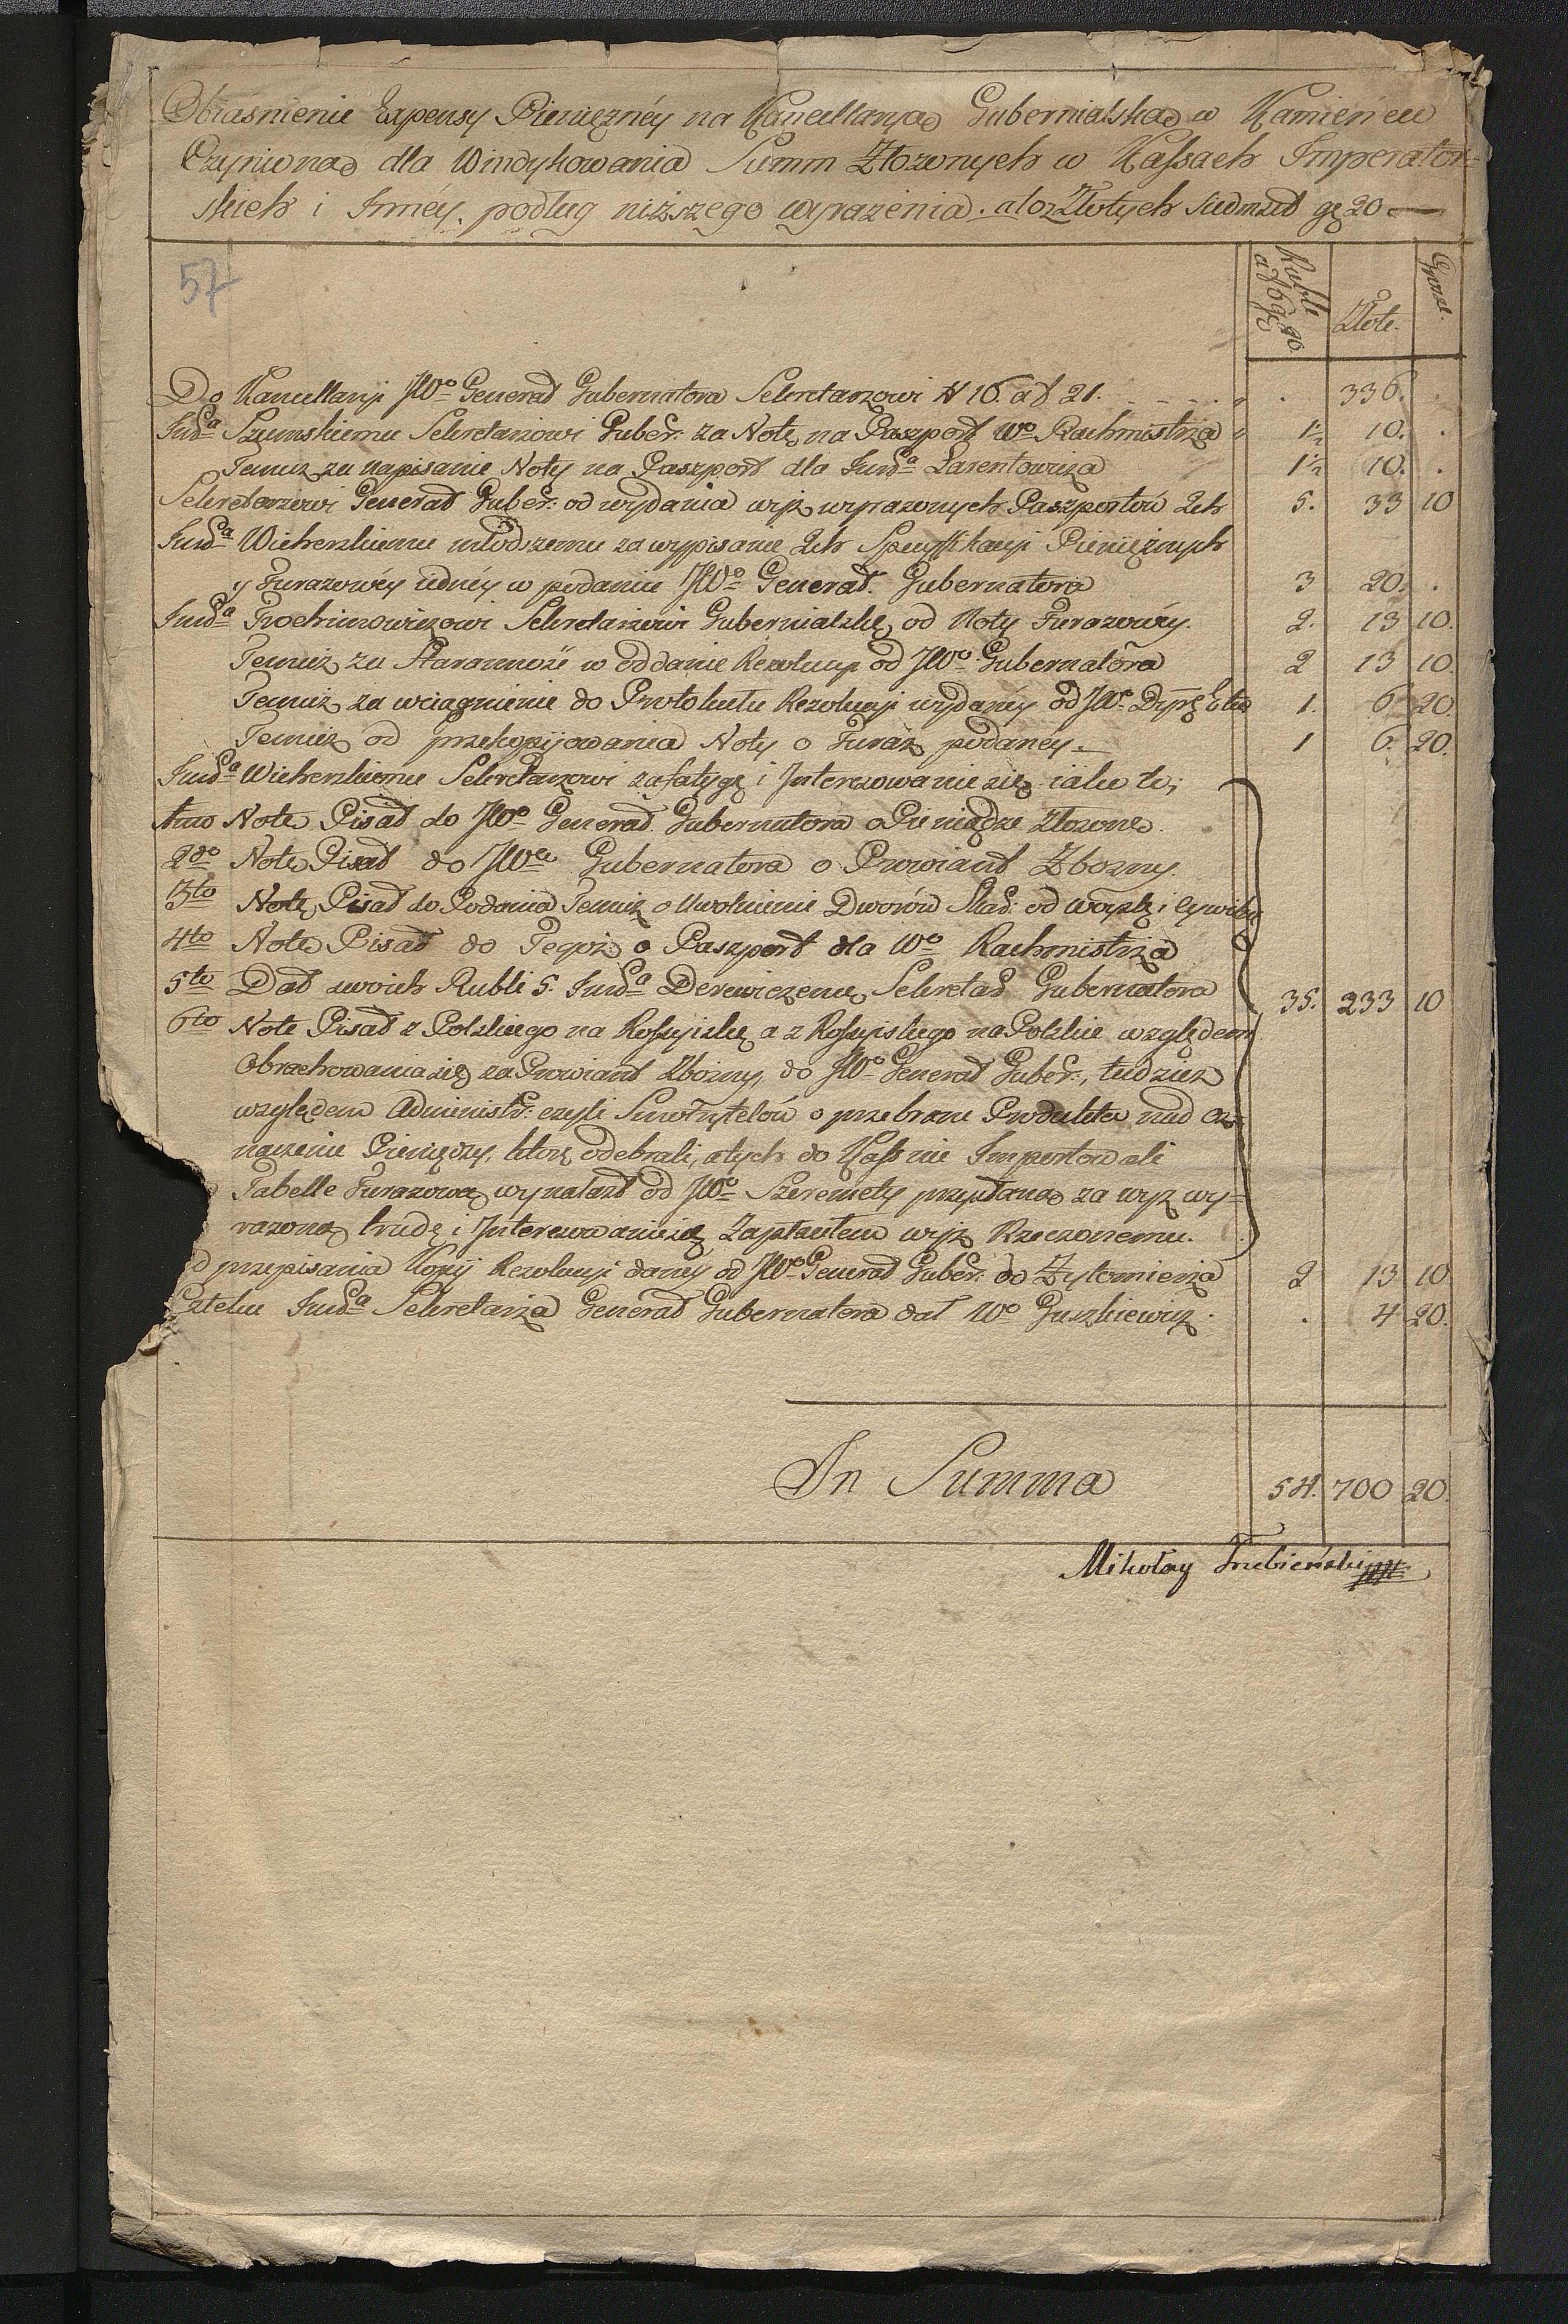 Obiaśnienie Expensy Pieniężnéy na Kancellaryą Gubernialską w Kamieńcu
Czynioną dla Windykowania Summ Złożonych w Kassach Imperator-
skich i Innéy podług niższego wyrażenia. a to Złotych siedmset gr 20
57
Ruble Złote. Grosze.
Do Kancellaryi JWo Generał Gubernatora Sekretarzowi # 16. ad 21. 336.
Imd.a Szumskiemu Sekretarzowi Guber: za Notę na Paszport Wo Rachmistrza 1½ 10.
Temuż za napisanie Noty na Paszport dla Imd.a Larentowicza 1½ 10.
Sekretarzowi Generał Guber: od wydania wyż wyrażonych Paszportów 2ch 5. 33 10
Imd.a Wicherskiemu młodszemu za wypisanie 2ch Specyfikacyi Pieniężnych
y Furażowéy iednéy w podaniu JWo Generał. Gubernatora 3 20.
Imd.a Trochimowiczowi Sekretarzowi Gubernialskie od Noty Furażowéy. 2. 13 10.
Temuż za Staranność w oddanie Rezolucyi od JWo Gubernatora 2 13 10.
Temuż za wciągnienie do Protokułu Rezolucyi wydanéy od JWo 1. 6 20.
Temuż od przekopijowania Noty o Furaż podanéy 1 6. 20.
Imd.a Wicherskiemu Sekretarzowi za fatygę i Interesowanie się iako to;
1mo Notę Pisał do JWo Generał. Gubernatora o Pieniądze Złożone.
2do Notę Pisał do JWo Gubernatora o Prowiant Zbożny.
3tio Notę Pisał do Podania Temuż o Uwolnienie Dworów Skad: od woysk i
4to Notę Pisał do Tegoż o Paszport dla Wo Rachmistrza
5to Dał swoich Rubli 5. Imd.a Derewiczemu Sekretarz Gubernatora 35. 233 10
6to Notę Pisał z Polskiego na Rossyiskie a z Rossyiskiego na Polskie względem
Obrachowania się za Prowiant Zbożny, do JWo Generał Guber:, tudzież
względem Administr: czyli o przebrane Produkta nad oz-
naczenie Pieniędzy, które odebrali, a tych do Kass nie Importowali
Tabelle Furażowe wynalazł od JWo Szeremety przysłane za wyż wy-
rażoną trudę i Interesowanie się Zapłaciłem wyż Rzeczonemu.
d przepisania Kopij Rezolucyi danéy od JWo Generał Guber: do Żytomierza 2 13 10
Imd.a Sekretarza Generał Gubernatora dał Wo Guszkiewicz. 4 20.
In Summa 54. 700 20.
Mikołay Trzebieński